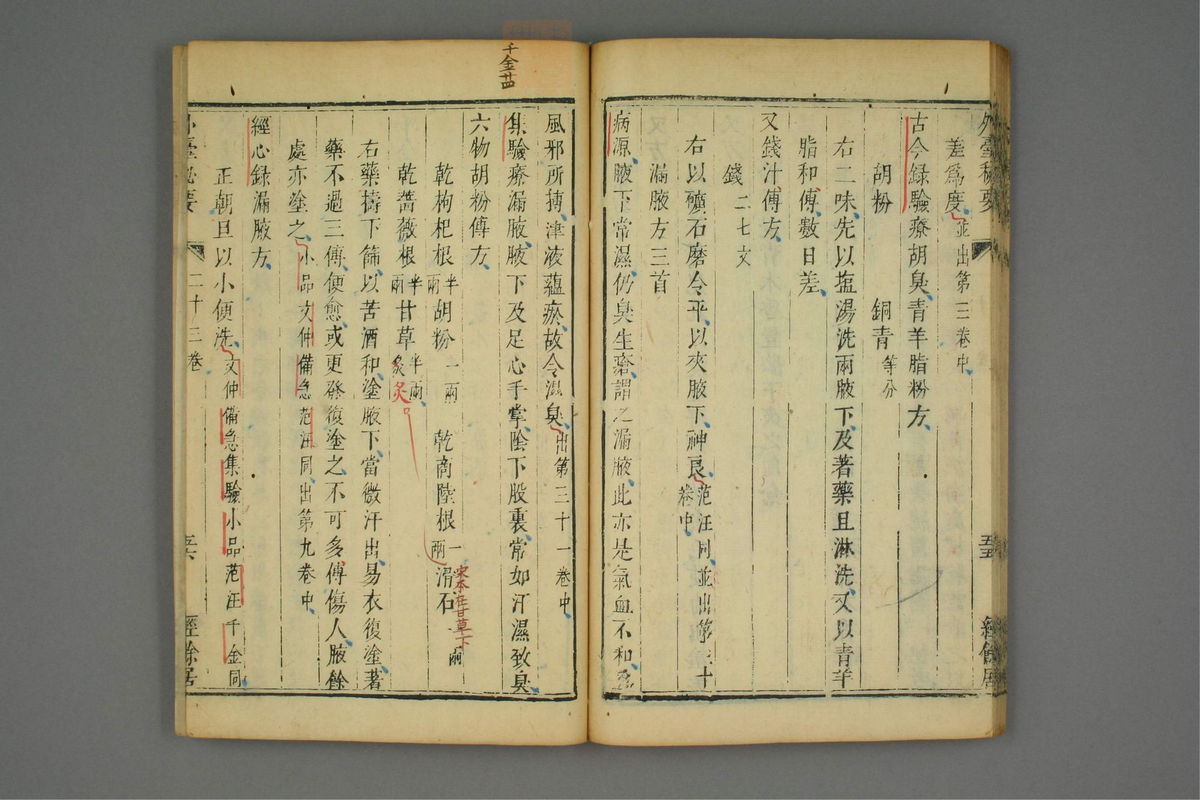 外臺秘要
五五
經餘居
差為度並出第三卷中
古今錄驗療胡臭青羊脂粉方
胡粉 銅青等分
右二味先以塩湯洗兩腋下及著藥且淋洗又以青羊
脂和傅數日差
又錢汁傅方
錢二七文
右以礪石磨令平以夾腋下神良范汪同並出第二十
卷中
漏腋方三首
病源腋下常濕仍臭生瘡謂之漏腋此亦是氣血不和為
風邪所搏津液蘊瘀故令濕臭出第三十一卷中
千金廿四
集驗療漏腋腋下及足心手掌陰下股裏常如汗濕致臭
六物胡粉傅方
乾枸杞根半兩胡粉一兩 乾商陸根一兩滑石一兩
宋本在甘草下
乾薔薇根半兩甘草半兩炙
炙
右藥擣下篩以苦酒和塗腋下當微汗出易衣復塗著
藥不過三傅便愈或更發復塗之不可多傅傷人腋餘
處亦塗之小品文仲備急范汪同出第九卷中
經心錄漏腋方
正朝旦以小便洗文仲備急集驗小品范汪千金同
外臺秘要
二十三卷
五六
經餘居